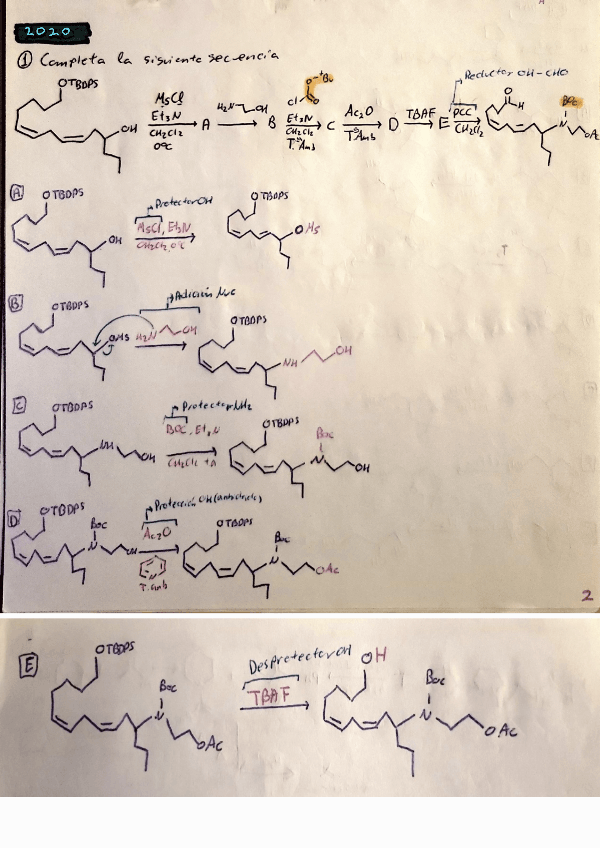 2020
① Completa la siguiente secuencia
OTBDPS
OH
MsCl
Et3N
CH2Cl2
0ºC
A
H2N OH
B
O tBu
Cl O
Et3N
CH2Cl2
T.ª Amb
C
Ac2O
T.ª Amb
D
TBAF
E
Reductor OH-CHO
PCC
CH2Cl2
O
H
Boc
N
OAc
A
OTBDPS
OH
Protector OH
MsCl, Et3N
CH2Cl2, 0ºC
OTBDPS
OMs
B
OTBDPS
OMS
Adición Nuc
H2N OH
OTBDPS
NH OH
C
OTBDPS
NH OH
Protector NH2
BOC, Et3N
CH2Cl2 tA
OTBDPS
Boc
N OH
D
OTBDPS
Boc
N OH
Protección OH (anhidrido)
Ac2O
T. amb
OTBDPS
Boc
N OAc
2
E
OTBDPS
Boc
N
OAc
Desprotector OH
TBAF
OH
Boc
N
OAc